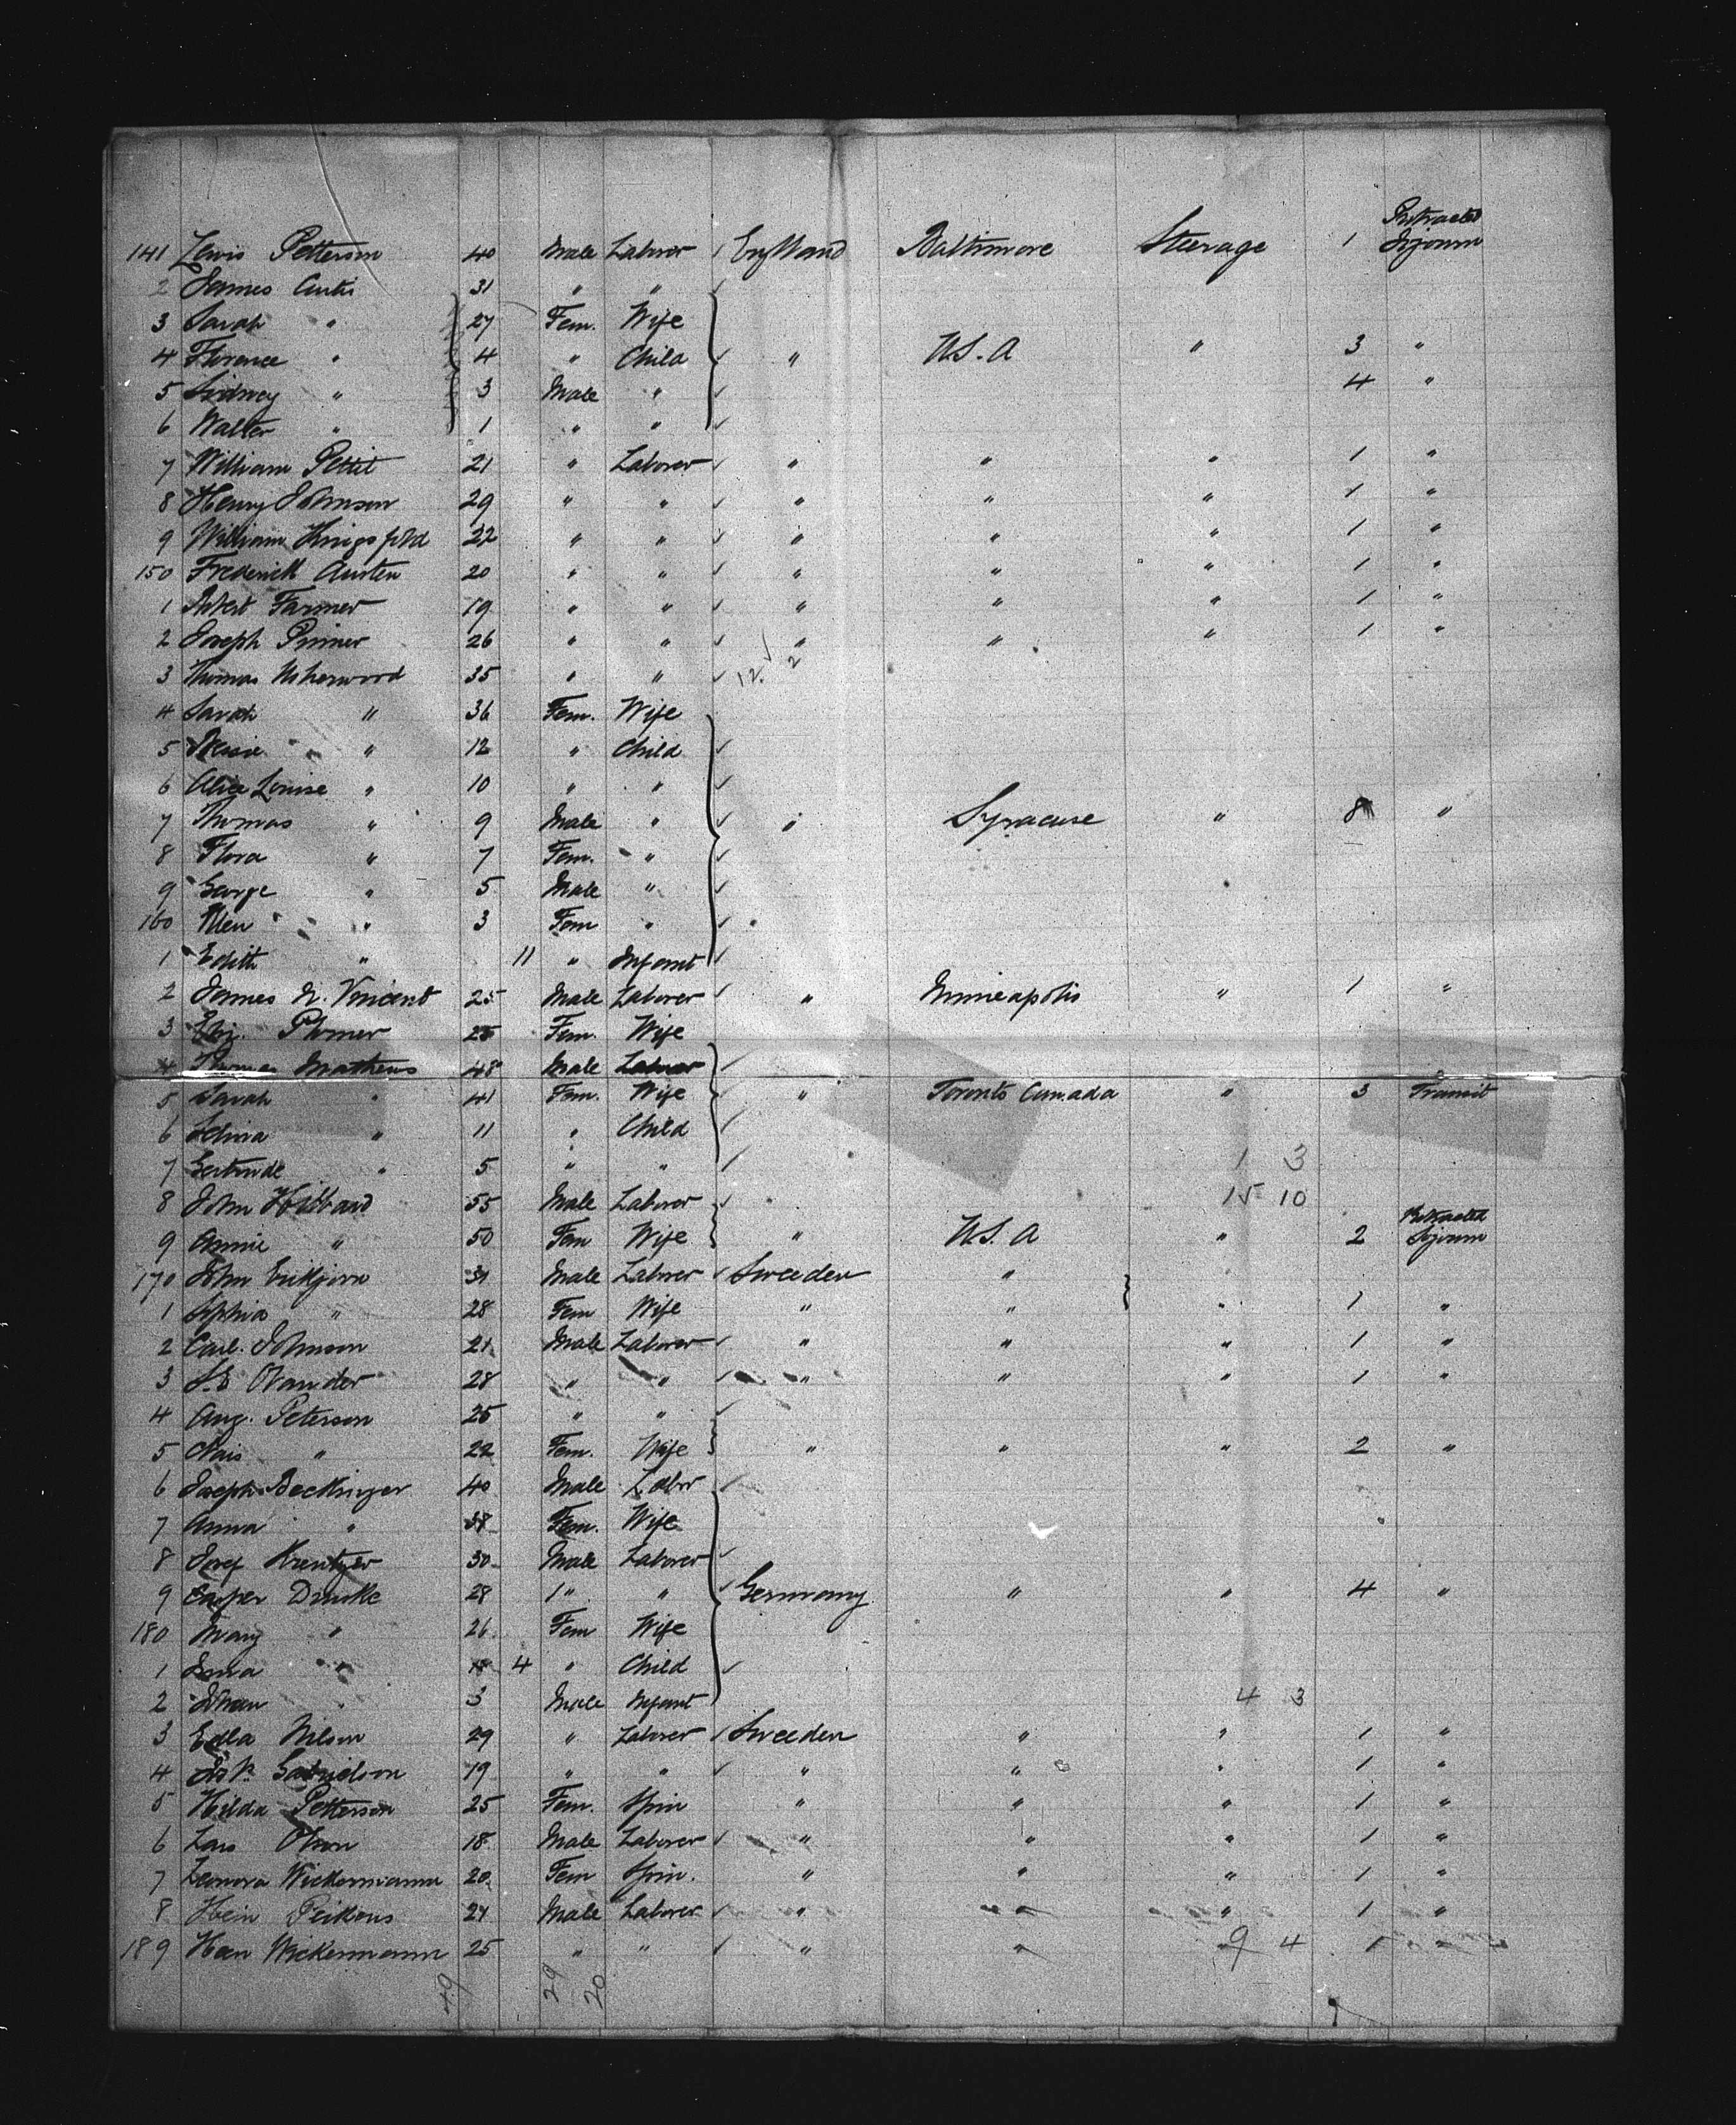 Protracted
141 Lewis Petterson 40 Male Laborer England Baltimore Steerage 1 Sojourn
2 James Curtis 31 " "
3 Sarah " 27 Fem. Wife
4 Florence " 4 " Child " U.S.A " 3 "
5 Sidney " 3 Male " 4 "
6 Walter " 1 " "
7 William Pettit 21 " Laborer " " " 1 "
8 Henry Johnson 29 " " " " " 1 "
9 William 22 " " " " " 1 "
150 Frederick Austen 20 " " " " " 1 "
1 Robert Farmer 19 " " " " " 1 "
2 Joseph 26 " " " " " 1 "
3 Thomas 35 " " 12 2
4 Sarah " 36 Fem. Wife
5 " 12 " Child
6 Alice Louise " 10 " "
7 Thomas " 9 Male " " Syracuse " 8 "
8 Flora " 7 Fem. "
9 George " 5 Male "
160 Ellen " 3 Fem "
1 Edith " 11 " Infant
2 James N. Vincent 25 Male Laborer " Minneapolis " 1 "
3 Eliz. 25 Fem. Wife
4 Thomas Mathews 48 Male Laborer
5 Sarah " 41 Fem. Wife " Toronto Canada " 3 Transit
6 Selina " 11 " Child
7 Gertrude " 5 " " 1 3
8 John Hibbard 55 Male Laborer 15 10
Protracted
9 Annie " 50 Fem Wife " U.S.A " 2 Sojourn
170 John 31 Male Laborer Sweeden "
1 Sophia " 28 Fem Wife " " " 1 "
2 Carl. Johnson 21 Male Laborer " " " 1 "
3 28 " " " " " 1 "
4 Aug. Peterson 25 " "
5 " 22 Fem. Wife " " " 2 "
6 Joseph Beckinger 40 Male Labr
7 Anna " 38 Fem. Wife
8 Josef Krentzer 30 Male Laborer
9 Casper 28 " " Germany " " 4 "
180 Mary " 26 Fem Wife
1 " 4 " Child
2 Johan " 3 Male Infant 4 3
3 Edla Nilson 29 " Laborer Sweeden " " 1 "
4 Gabrielson 19 " " " " " 1 "
5 Hilda Petterson 25 Fem. Spin " " " 1 "
6 Lars Olson 18 Male Laborer " " " 1 "
7 Leonora Wickermann 20 Fem Spin. " " " 1 "
8 Hein 21 Male Laborer " " " 1 "
189 Wickermann 25 " " " " 9 4 1 "
49 29 20